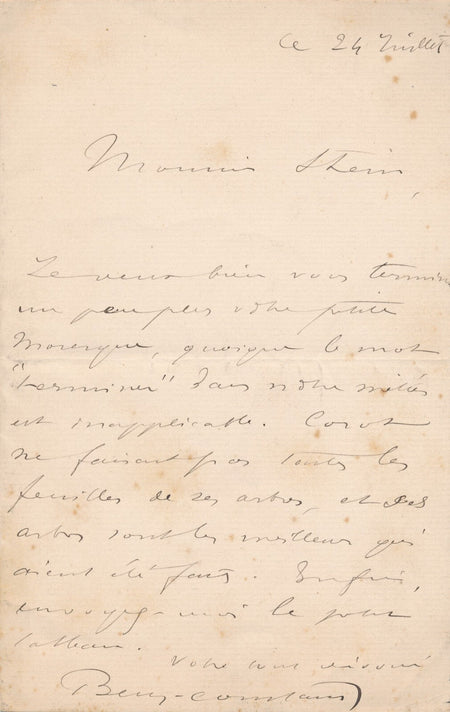 ce 24 Juillet
Monsieur Stein,
Je veux bien vous terminer
un peu plus votre petite
Moresque, quoique le mot
"terminer" dans notre métier
est inapplicable. Corot
ne faisait pas toutes les
feuilles de ses arbres, et ses
arbres sont les meilleurs qui
aient été faits. Enfin,
envoyez-moi le petit
tableau.
Votre tout dévoué
Benj-Constant